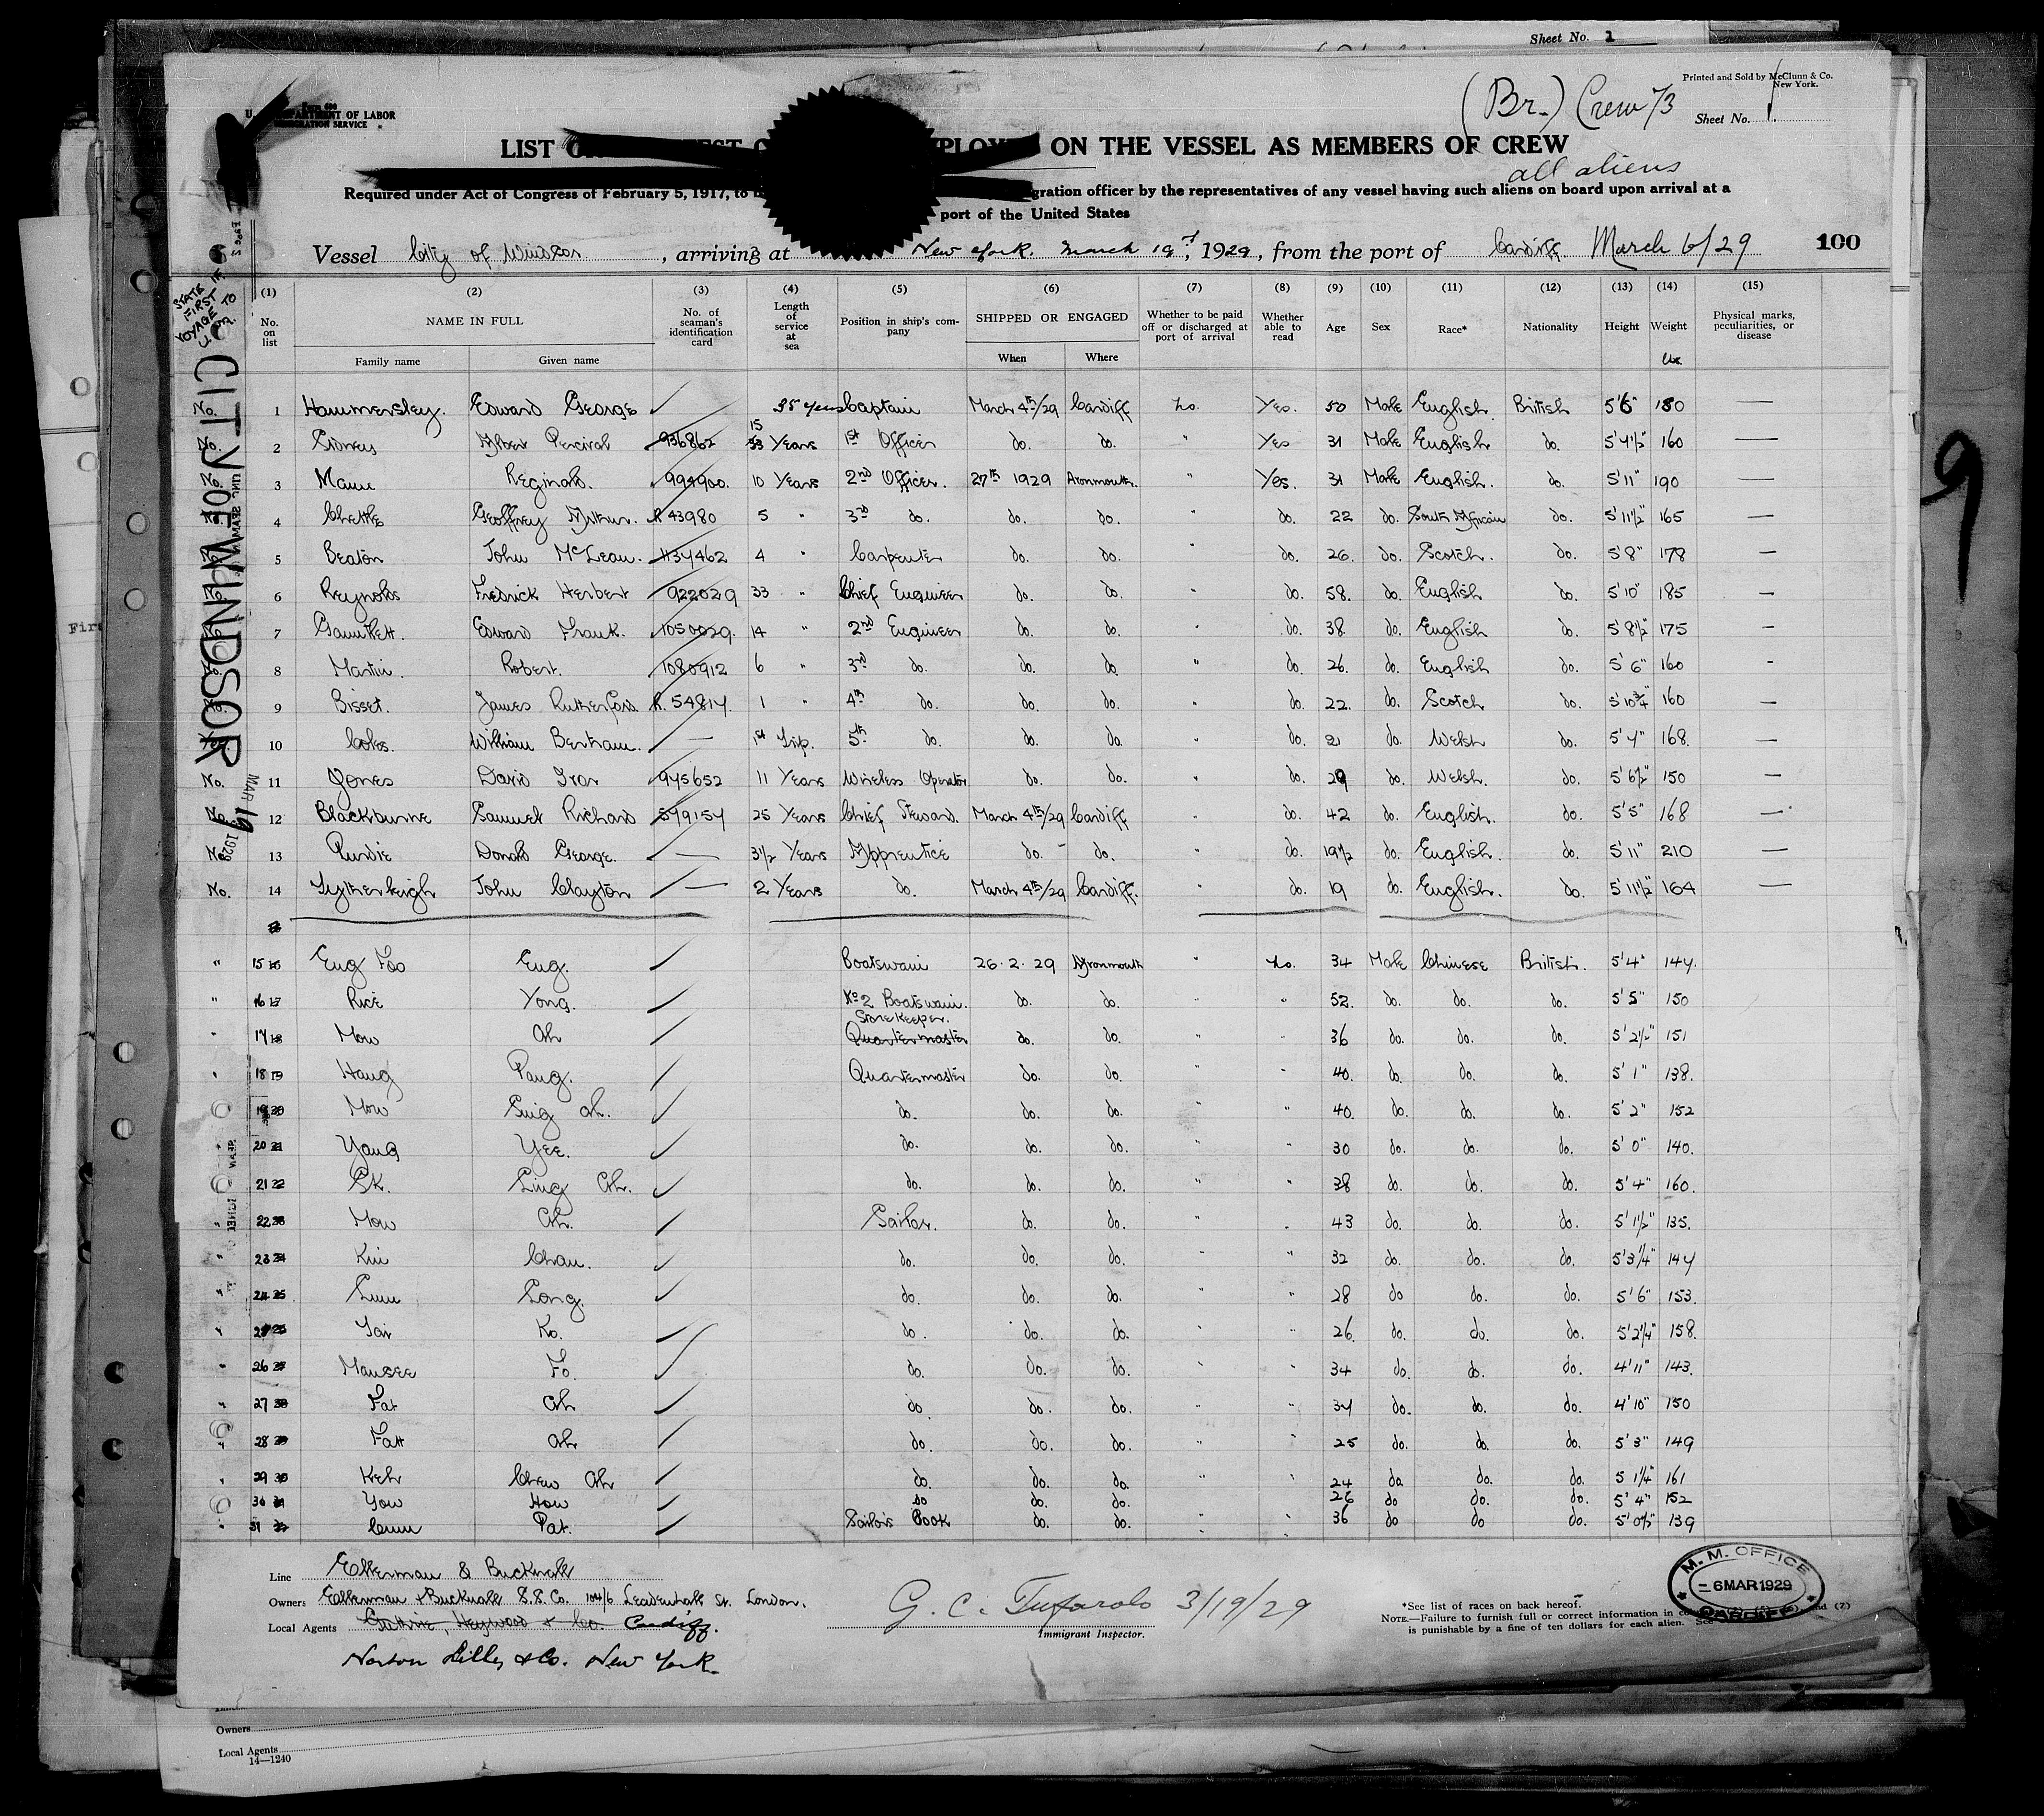 Sheet No. 1
Printed and Sold by McClunn & Co.
New York.
(Br.) Crew 73
Sheet No. 1.
Form 680
U. DEPARTMENT OF LABOR
IMMIGRATION SERVICE
LIST ON THE VESSEL AS MEMBERS OF CREW
all aliens
Required under Act of Congress of February 5, 1917, to gration officer by the representatives of any vessel having such aliens on board upon arrival at a
port of the United States
Vessel City of Windsor, arriving at New York. March 19, 1929, from the port of Cardiff March 6/29 100
STATE IF FIRST VOYAGE TO
CITY OF WINDSOR
MAR 19 1929
(1) (2) (3) (4) (5) (6) (7) (8) (9) (10) (11) (12) (13) (14) (15)
No. on list NAME IN FULL No. of seaman's identification card Length of service at sea Position in ship's company SHIPPED OR ENGAGED Whether to be paid off or discharged at port of arrival Whether able to read Age Sex Race* Nationality Height Weight Physical marks, peculiarities, or disease
Family name Given name When Where
No. 1 Hammersley. Edward George 35 years Captain March 4th/29 Cardiff No. Yes. 50 Male English. British 5'6" 180 —
No. 2 Albert Percival 936862 15 Years 1st Officer do. do. " Yes 31 Male English do. 5'4½" 160 —
No. 3 Reginald. 994900. 10 Years 2nd Officer. 27th 1929 Avonmouth. " Yes. 31 Male English. do. 5'11" 190 —
4 Geoffrey Arthur. R 43980 5 " 3rd do. do. do. " do. 22 do. South African do. 5'11½" 165 —
5 Beaton John McLean. 1134462 4 " Carpenter do. do. " do. 26. do. Scotch. do. 5'8" 178 —
6 Reynolds Fredrick Herbert 922029 33 " Chief Engineer do. do. " do. 58. do. English do. 5'10" 185 —
7 Gauntlett. Edward Frank. 1050029. 14 " 2nd Engineer do. do. " do. 38 do. English do. 5'8½" 175 —
8 Martin. Robert. 1080912 6 " 3rd do. do. do " do. 26. do. English do. 5'6" 160 -
9 Bisset. James Rutherford R. 54814. 1 " 4th do. do. do. " do. 22. do. Scotch do. 5'10¾" 160 —
10 Coles. William Bertram. — 1st Trip. 5th do. do. do " do. 21 do. Welsh do. 5'4" 168. —
No. 11 Jones David Ivor 945652 11 Years Wireless Operator do. do. " do. 29 do. Welsh. do. 5'6½" 150 —
No. 12 Blackburne Samuel Richard 549154 25 Years Chief Steward. March 4th/29 Cardiff " do. 42 do. English. do. 5'5" 168 —
No. 13 Purdie Donald George. — 3½ Years Apprentice do. do. " do. 19½ do. English. do. 5'11" 210 —
No. 14 Lytherleigh John Clayton — 2 Years do. March 4th/29 Cardiff. " do. 19 do. English. do. 5'11½" 164 —
" 15 Eng Foo Eng. Boatswain 26.2.29 Avonmouth " No. 34 Male Chinese British. 5'4" 144.
" 16 Rice Yong. No 2 Boatswain. do. do. " " 52. do. do. do. 5'5" 150
Storekeeper.
" 17 Mow Ah Quartermaster do. do. " " 36 do. do. do. 5'2½" 151
" 18 Hang Pang. Quartermaster do. do. " " 40. do. do. do. 5'1" 138.
19 Mow Ah. do. do. do. " " 40. do. do. do. 5'2" 152
" 20 Yang Yee. do. do. do. " " 30 do. do. do. 5'0" 140.
21 Ling Ah. do. do. do. " " 38 do. do. do. 5'4" 160.
" 22 Mow Ah. Sailor. do. do. " " 43 do. do. do. 5'1½" 135.
" 23 Kin Chan. do. do. do. " " 32 do. do. do. 5'3¼" 144
" 24 do. do. do. " " 28 do do. do. 5'6" 153.
" 25 Ko. do. do. do. " " 26. do. do. do. 5'2¼" 158.
" 26 Mansee Fo. do. do. do. " " 34 do. do. do. 4'11" 143.
" 27 Fat Ah do. do. do. " " 34 do. do. do. 4'10" 150
" 28 Fatt Ah do. do. do. " " 25 do. do. do. 5'3" 149
" 29 Keh Chew Ah do. do. do. " " 24 do. do. do. 5 1¼" 161
30 You How do do. do. 26 do do. do. 5'4" 152
" 31 Pat. Sailors Cook do. do. " " 36 do do do. 5'0½" 139
Line Ellerman & Bucknall
Owners Ellerman & Bucknall S.S. Co. 104/6 Leadenhall St. London.
Local Agents Guthrie, Heywood & Co. Cardiff.
Norton Lilly & Co. New York.
G. C. Tufarolo 3/19/29
Immigrant Inspector.
*See list of races on back hereof.
NOTE.—Failure to furnish full or correct information in and (7)
is punishable by a fine of ten dollars for each alien. See
M. M. OFFICE
6 MAR 1929
CARDIFF
Owners
Local Agents
14—1240